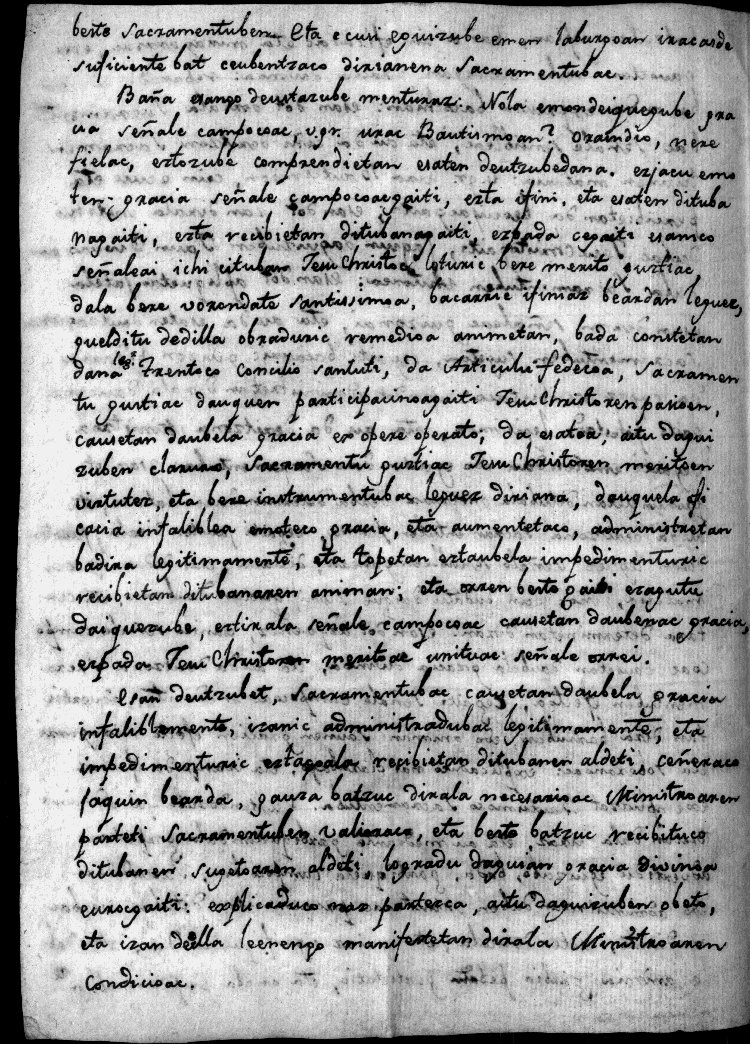 berte sacramentuben. Eta ecusi eguizube emen laburgoan iracasde
suficiente bat ceubentzaco dirianena Sacramentubac.
Baña esango deustazube menturaz: Nola emondeiquegube gra
cia señale campocoac, v.gr. urac Bautismoan? oraindio, nere
fielac, eztozube comprendietan esaten deutzubedana. ezjacu emo
ten gracia señale campocoacgaiti, ezta ifini, eta esaten dituba
nagaiti, ezta recibietan ditubanagaiti, ezpada cegaiti esanico
señaleai ichi cituban Jesu Christoc loturic bere merito guztiac,
dala bere vorondate santissimoa, bacarric ifiniaz beardan leguez,
quelditu dedilla obraduric remedioa animetan, bada constetan
dana legz Trentoco Concilio santuti, da Articulu fedecoa, Sacramen
tu guztiac dauquen participacinoagaiti Jesu Christoren pasioen,
causetan daubela gracia ex opere operato, da esatea, aitu dagui
zuben claruro, Sacramentu guztiac Jesu Christoren meritoen
virtutez, eta bere instrumentubac leguez diriana, dauquela efi
cacia infaliblea emoteco gracia, eta aumentetaco, administretan
badira legitimamente, eta topetan eztaubela impedimenturic
recibietan ditubanaren animan; eta orren berte gaiti ezagutu
daiquezube, eztirala señale campocoac causetan daubenac gracia,
ezpada Jesu Christoren meritoac unituac señale orrei.
Esan deutzubet, Sacramentubac causetan daubela gracia
infaliblemente, izanic administradubac legitimamente, eta
impedimenturic eztagoala recibietan ditubanen aldeti, ceñeraco
jaquin bearda, gauza batzuc dirala necesarioac Ministroaren
parteti Sacramentuben valioraco, eta berte batzuc recibituco
ditubanen sugetoaren aldeti, logradu daguian gracia divinea
eurocgaiti: explicaduco naz partezca, aitu daguizuben obeto,
eta izan dedilla leenengo manifestetan dirala Ministroaren
condicioac.